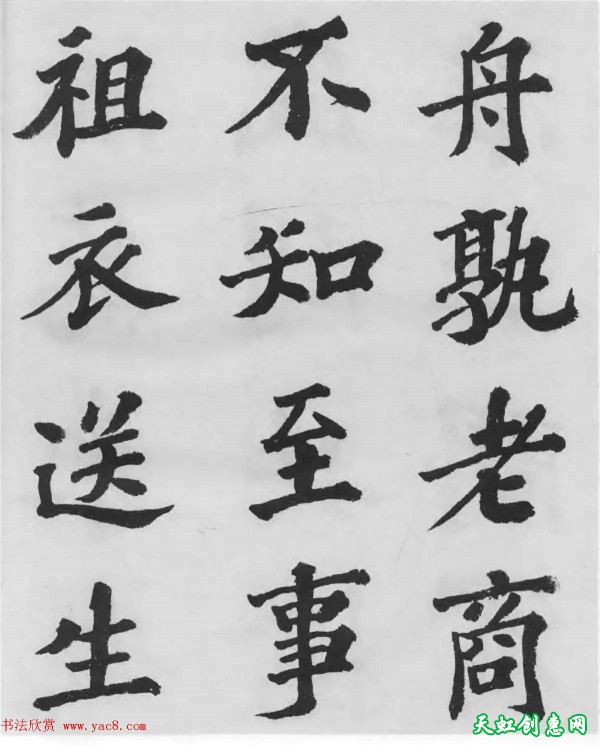 舟孰老商
不知至事
祖衣送生
书法欣赏 www.yac8.com
天虹创意网